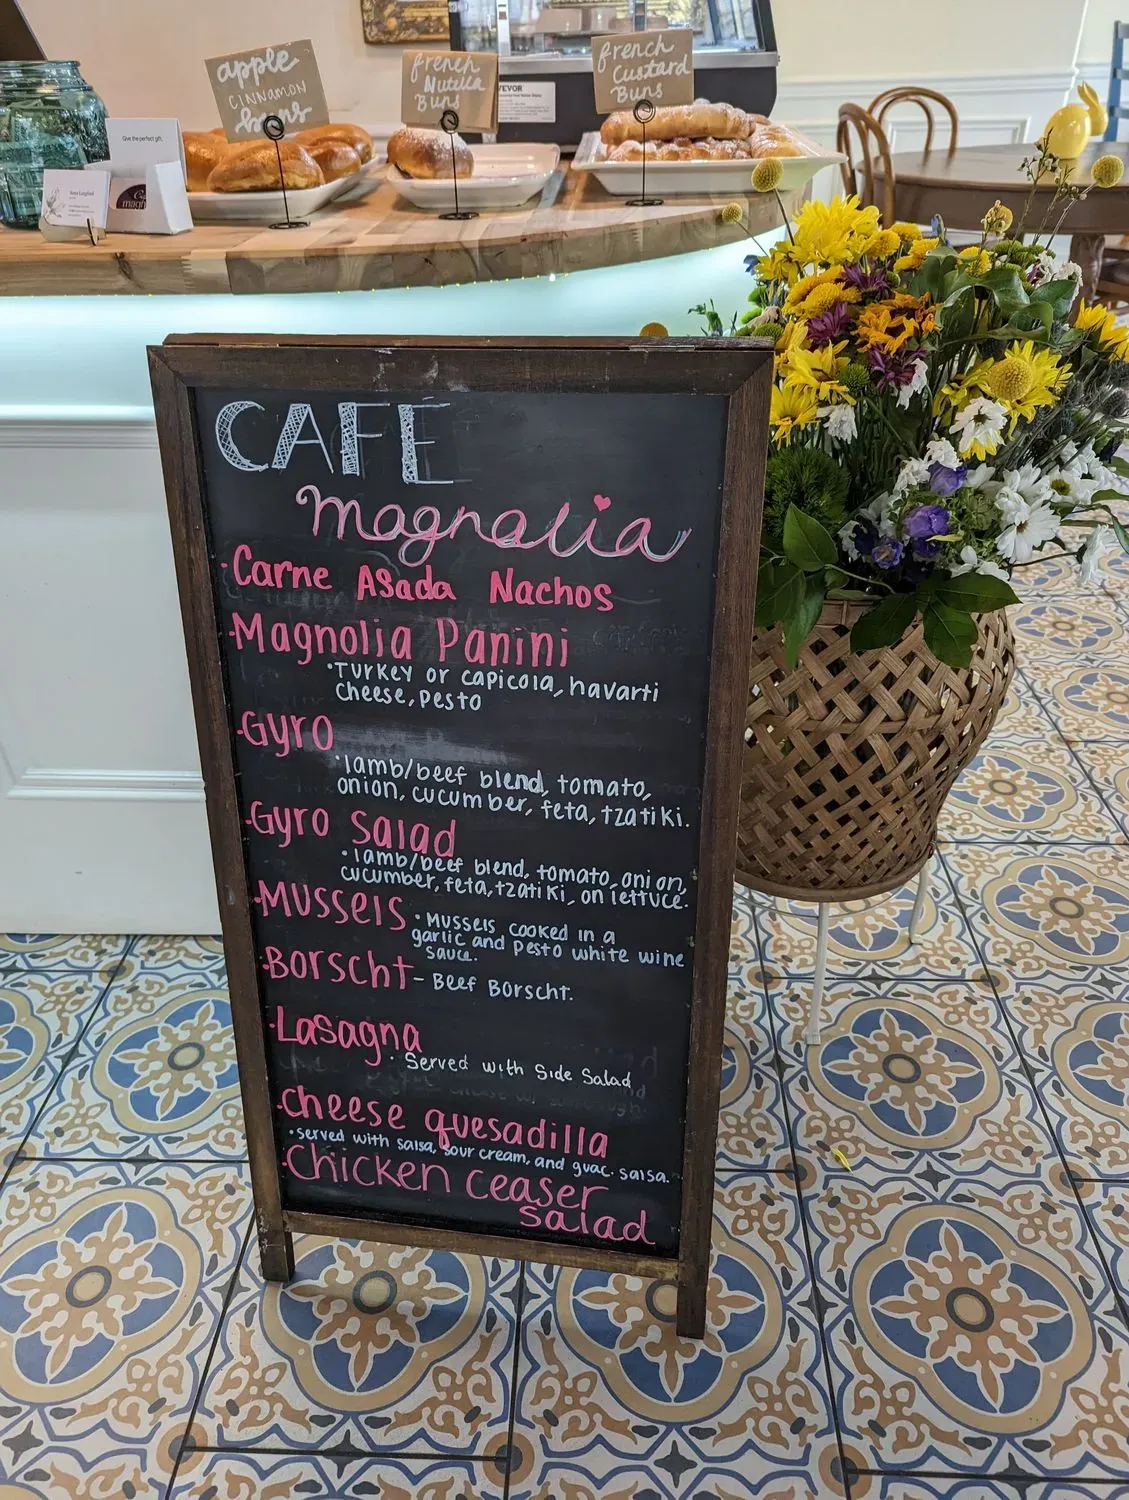 apple
cinnamon
buns
french
Nutella
Buns
french
Custard
Buns
VEVOR
Give the perfect gift.
CAFE
magnolia
·Carne Asada Nachos
·Magnolia Panini
·Turkey or capicola, havarti
cheese, pesto
·Gyro
·lamb/beef blend, tomato,
onion, cucumber, feta, tzatiki.
·Gyro salad
·lamb/beef blend, tomato, onion,
cucumber, feta, tzatiki, on lettuce.
·Mussels ·Mussels cooked in a
garlic and pesto white wine
sauce.
·Borscht - Beef Borscht.
·Lasagna
·Served with Side Salad
·cheese quesadilla
·served with salsa, sour cream, and guac. salsa.
·Chicken ceaser
salad